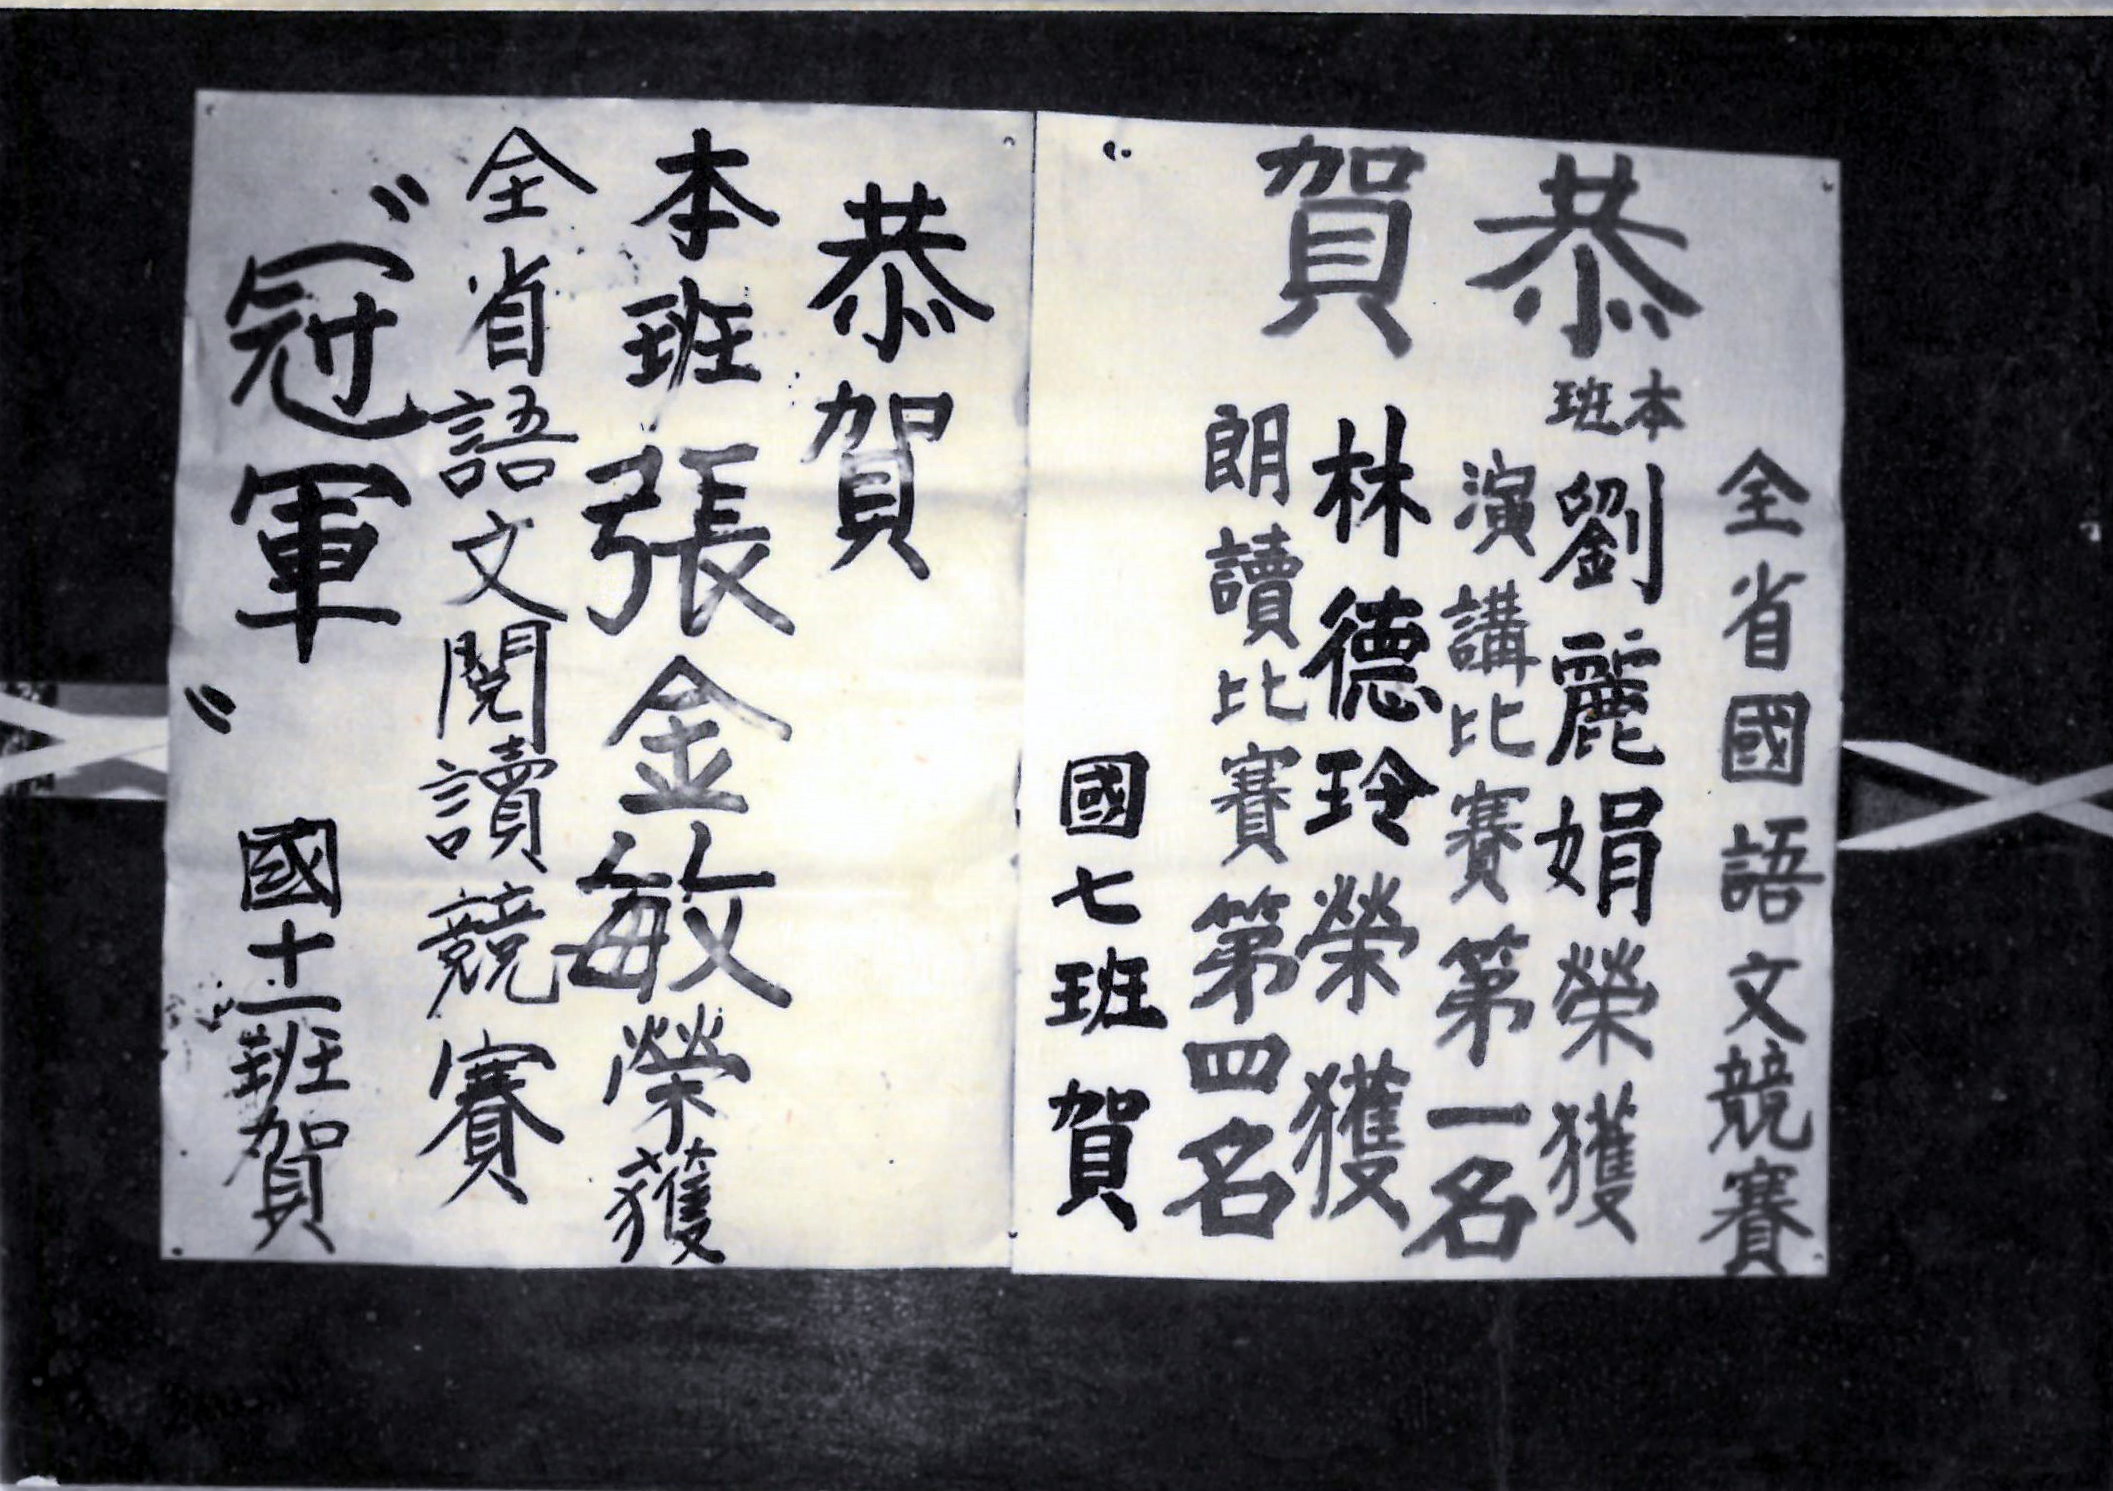 恭賀
全省國語文競賽
本班劉麗娟榮獲
演講比賽第一名
林德玲榮獲
朗讀比賽第四名
國七班賀
恭賀
本班張金敏榮獲
全省語文閱讀競賽
〝冠軍〞
國十二班賀